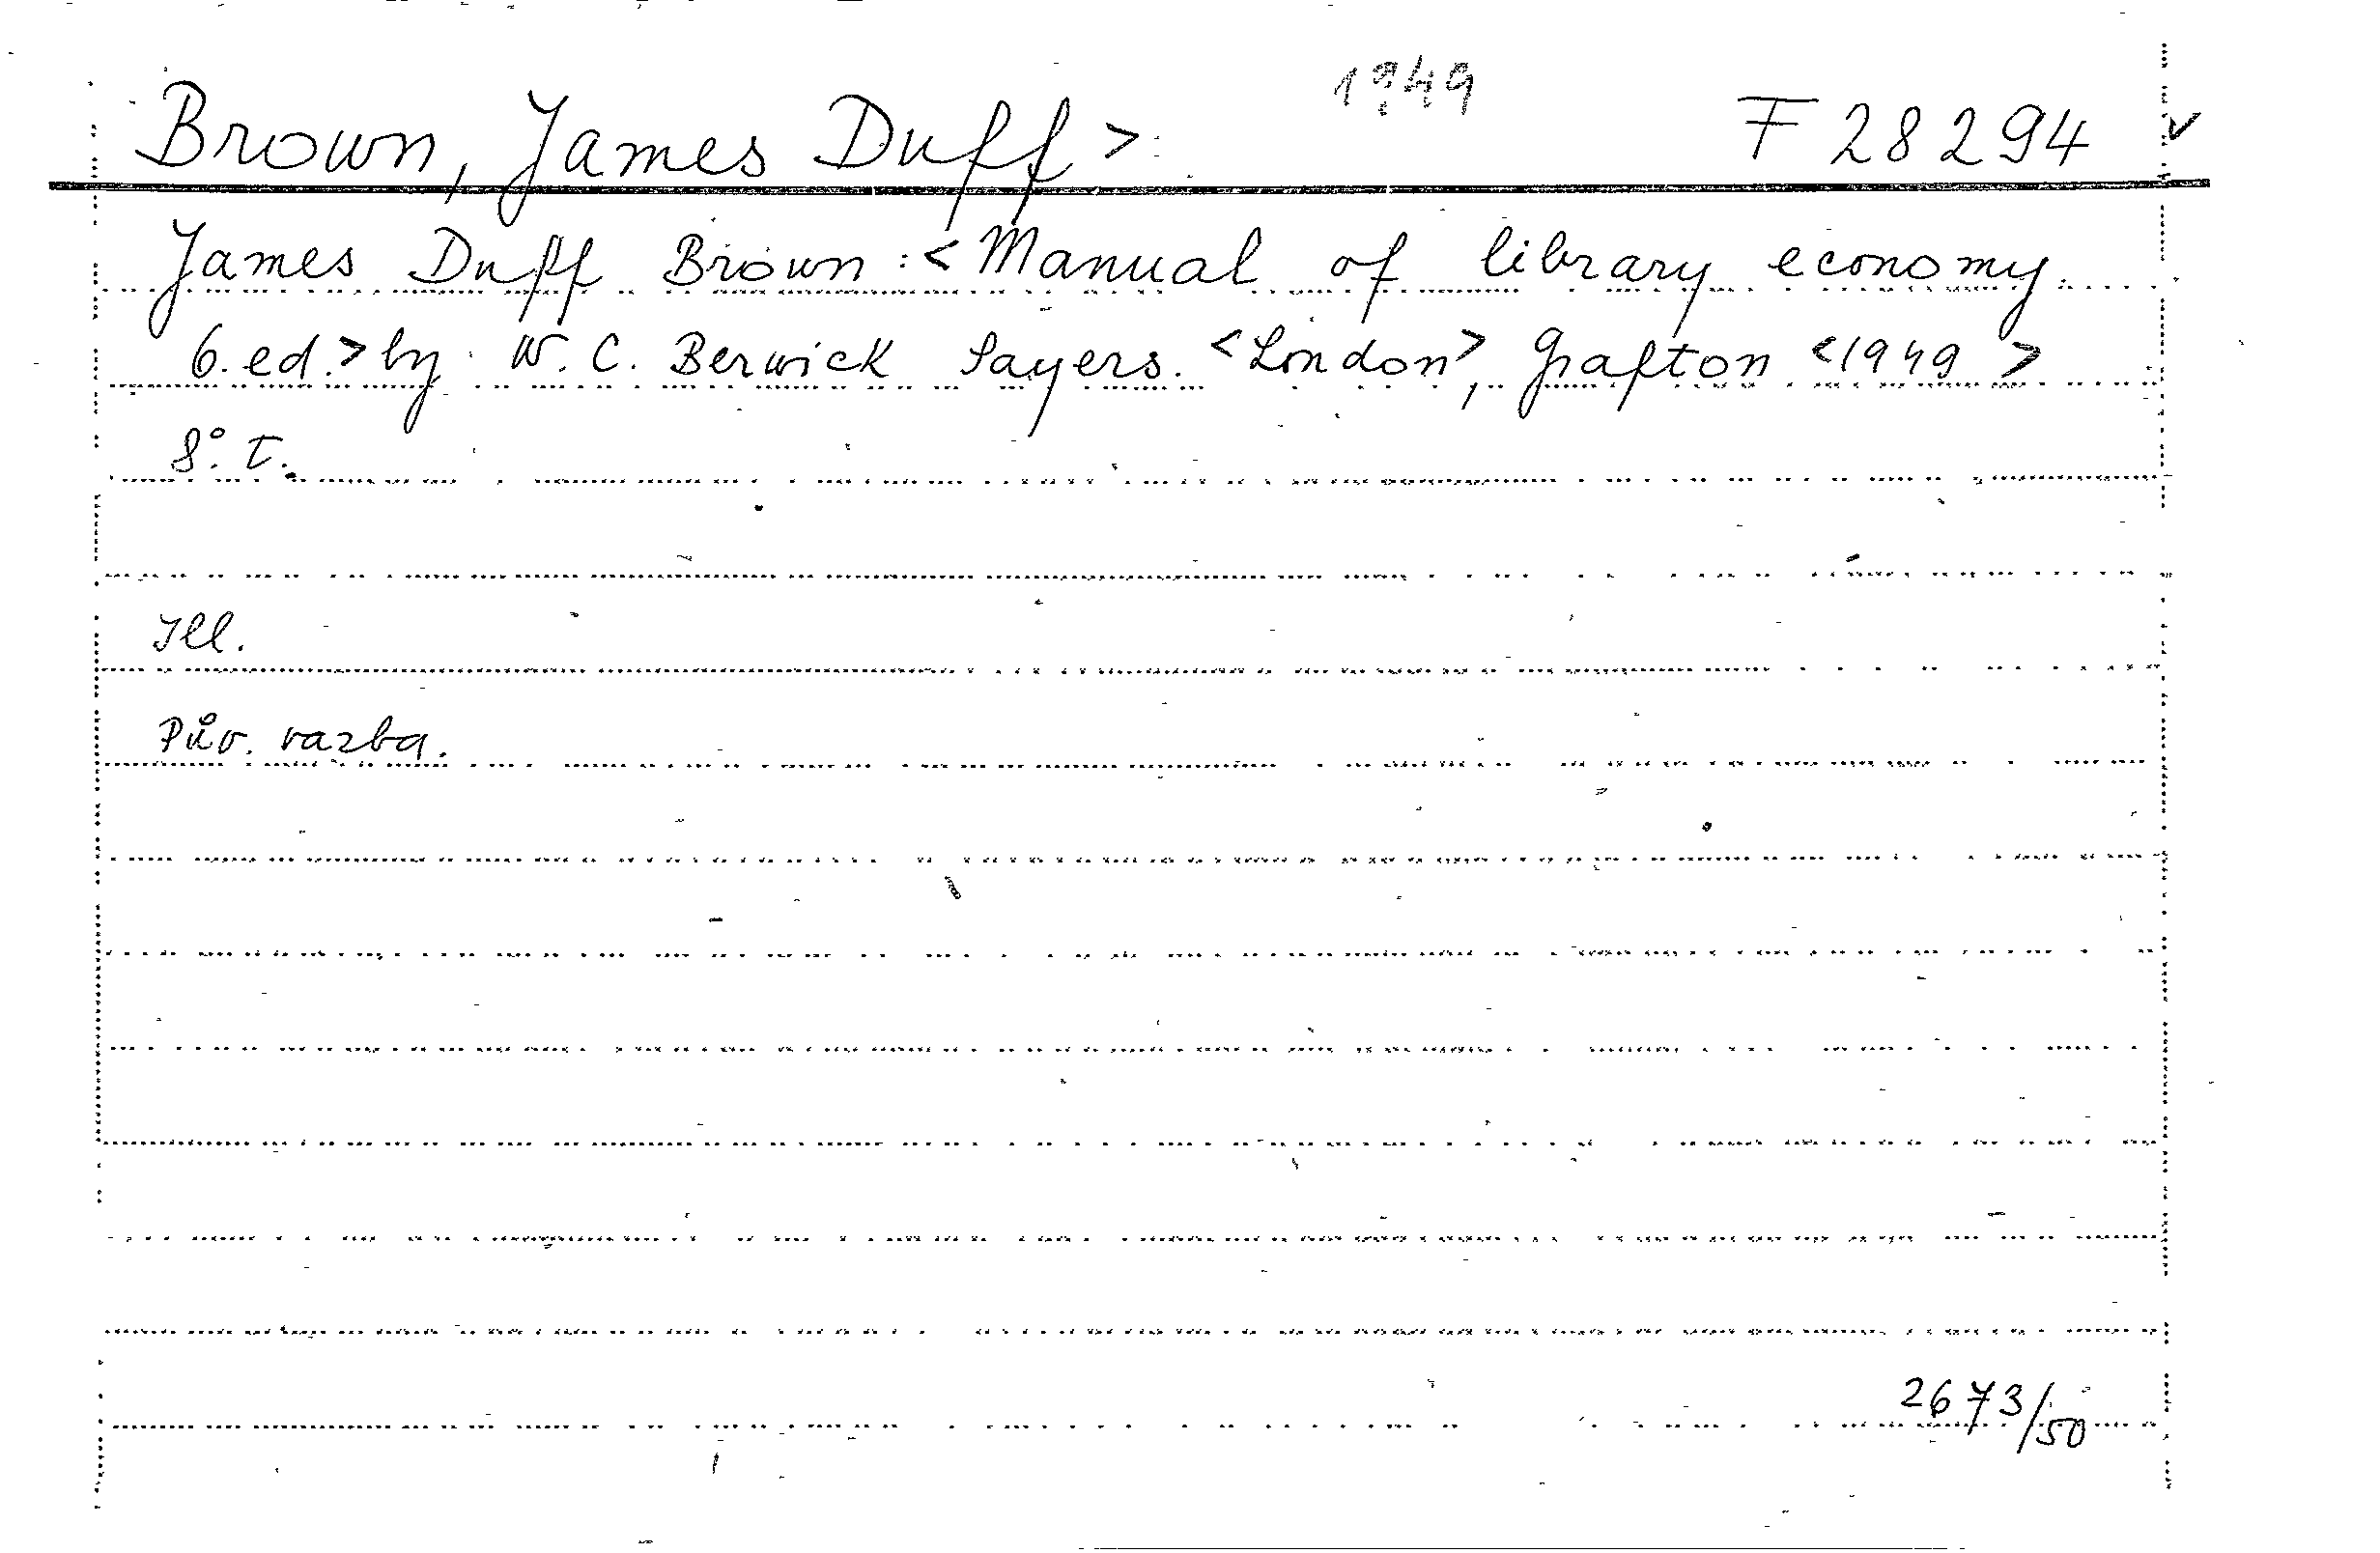 1949
Brown, James Duff > F 28294 ✓
James Duff Brown: < Manual of library economy.
6. ed. > by W. C. Berwick Sayers. < London >, Grafton < 1949 >
8°. T.
Ill.
Pův. vazba.
2673/50